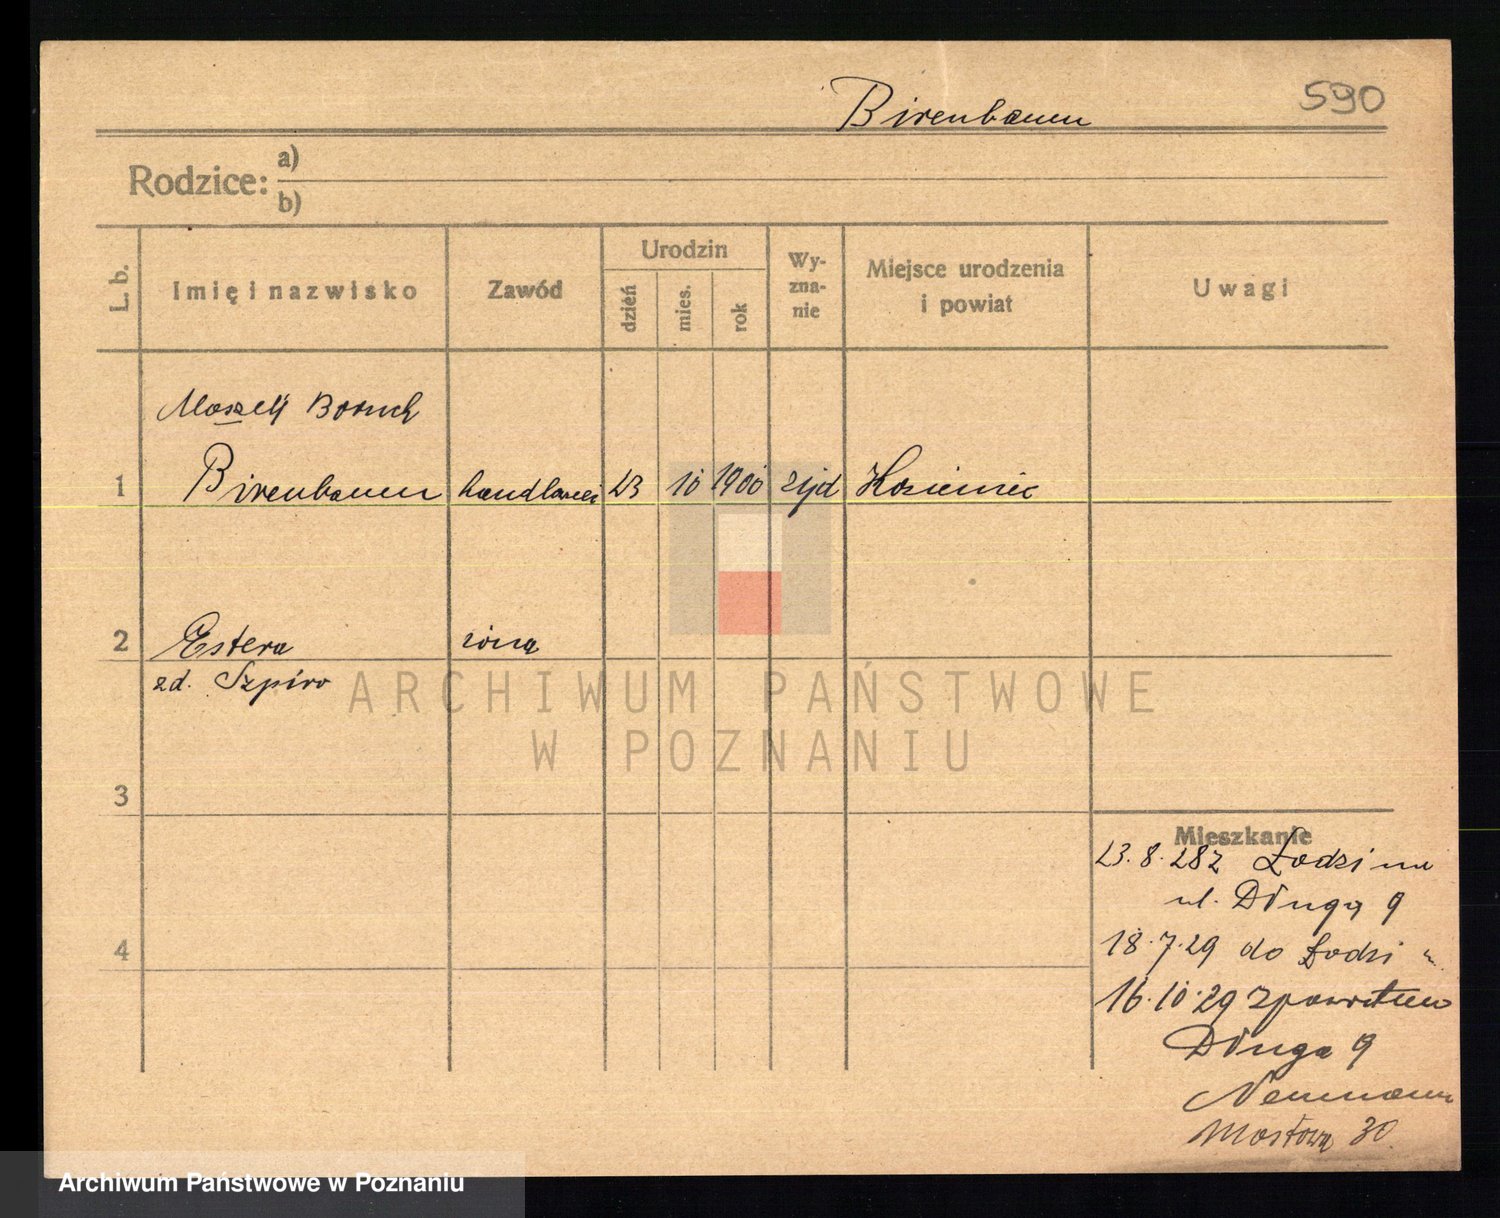 590
Birenbaum
Rodzice:
a)
b)
L. b.
Imię i nazwisko
Zawód
Urodzin
dzień
mies.
rok
Wy-
zna-
nie
Miejsce urodzenia
i powiat
Uwagi
Moszek Boruch
1 Birenbaum handlarz 23 10 1900 żyd Kozienice
2 Estera żona
zd. Szpiro
ARCHIWUM PAŃSTWOWE
W POZNANIU
3
Mieszkanie
23.8.28 z Łodzi na
ul. Długą 9
4
18.7.29 do Łodzi
16.10.29 z powrotem
Długa 9
Neumann
Mostowa 30
Archiwum Państwowe w Poznaniu